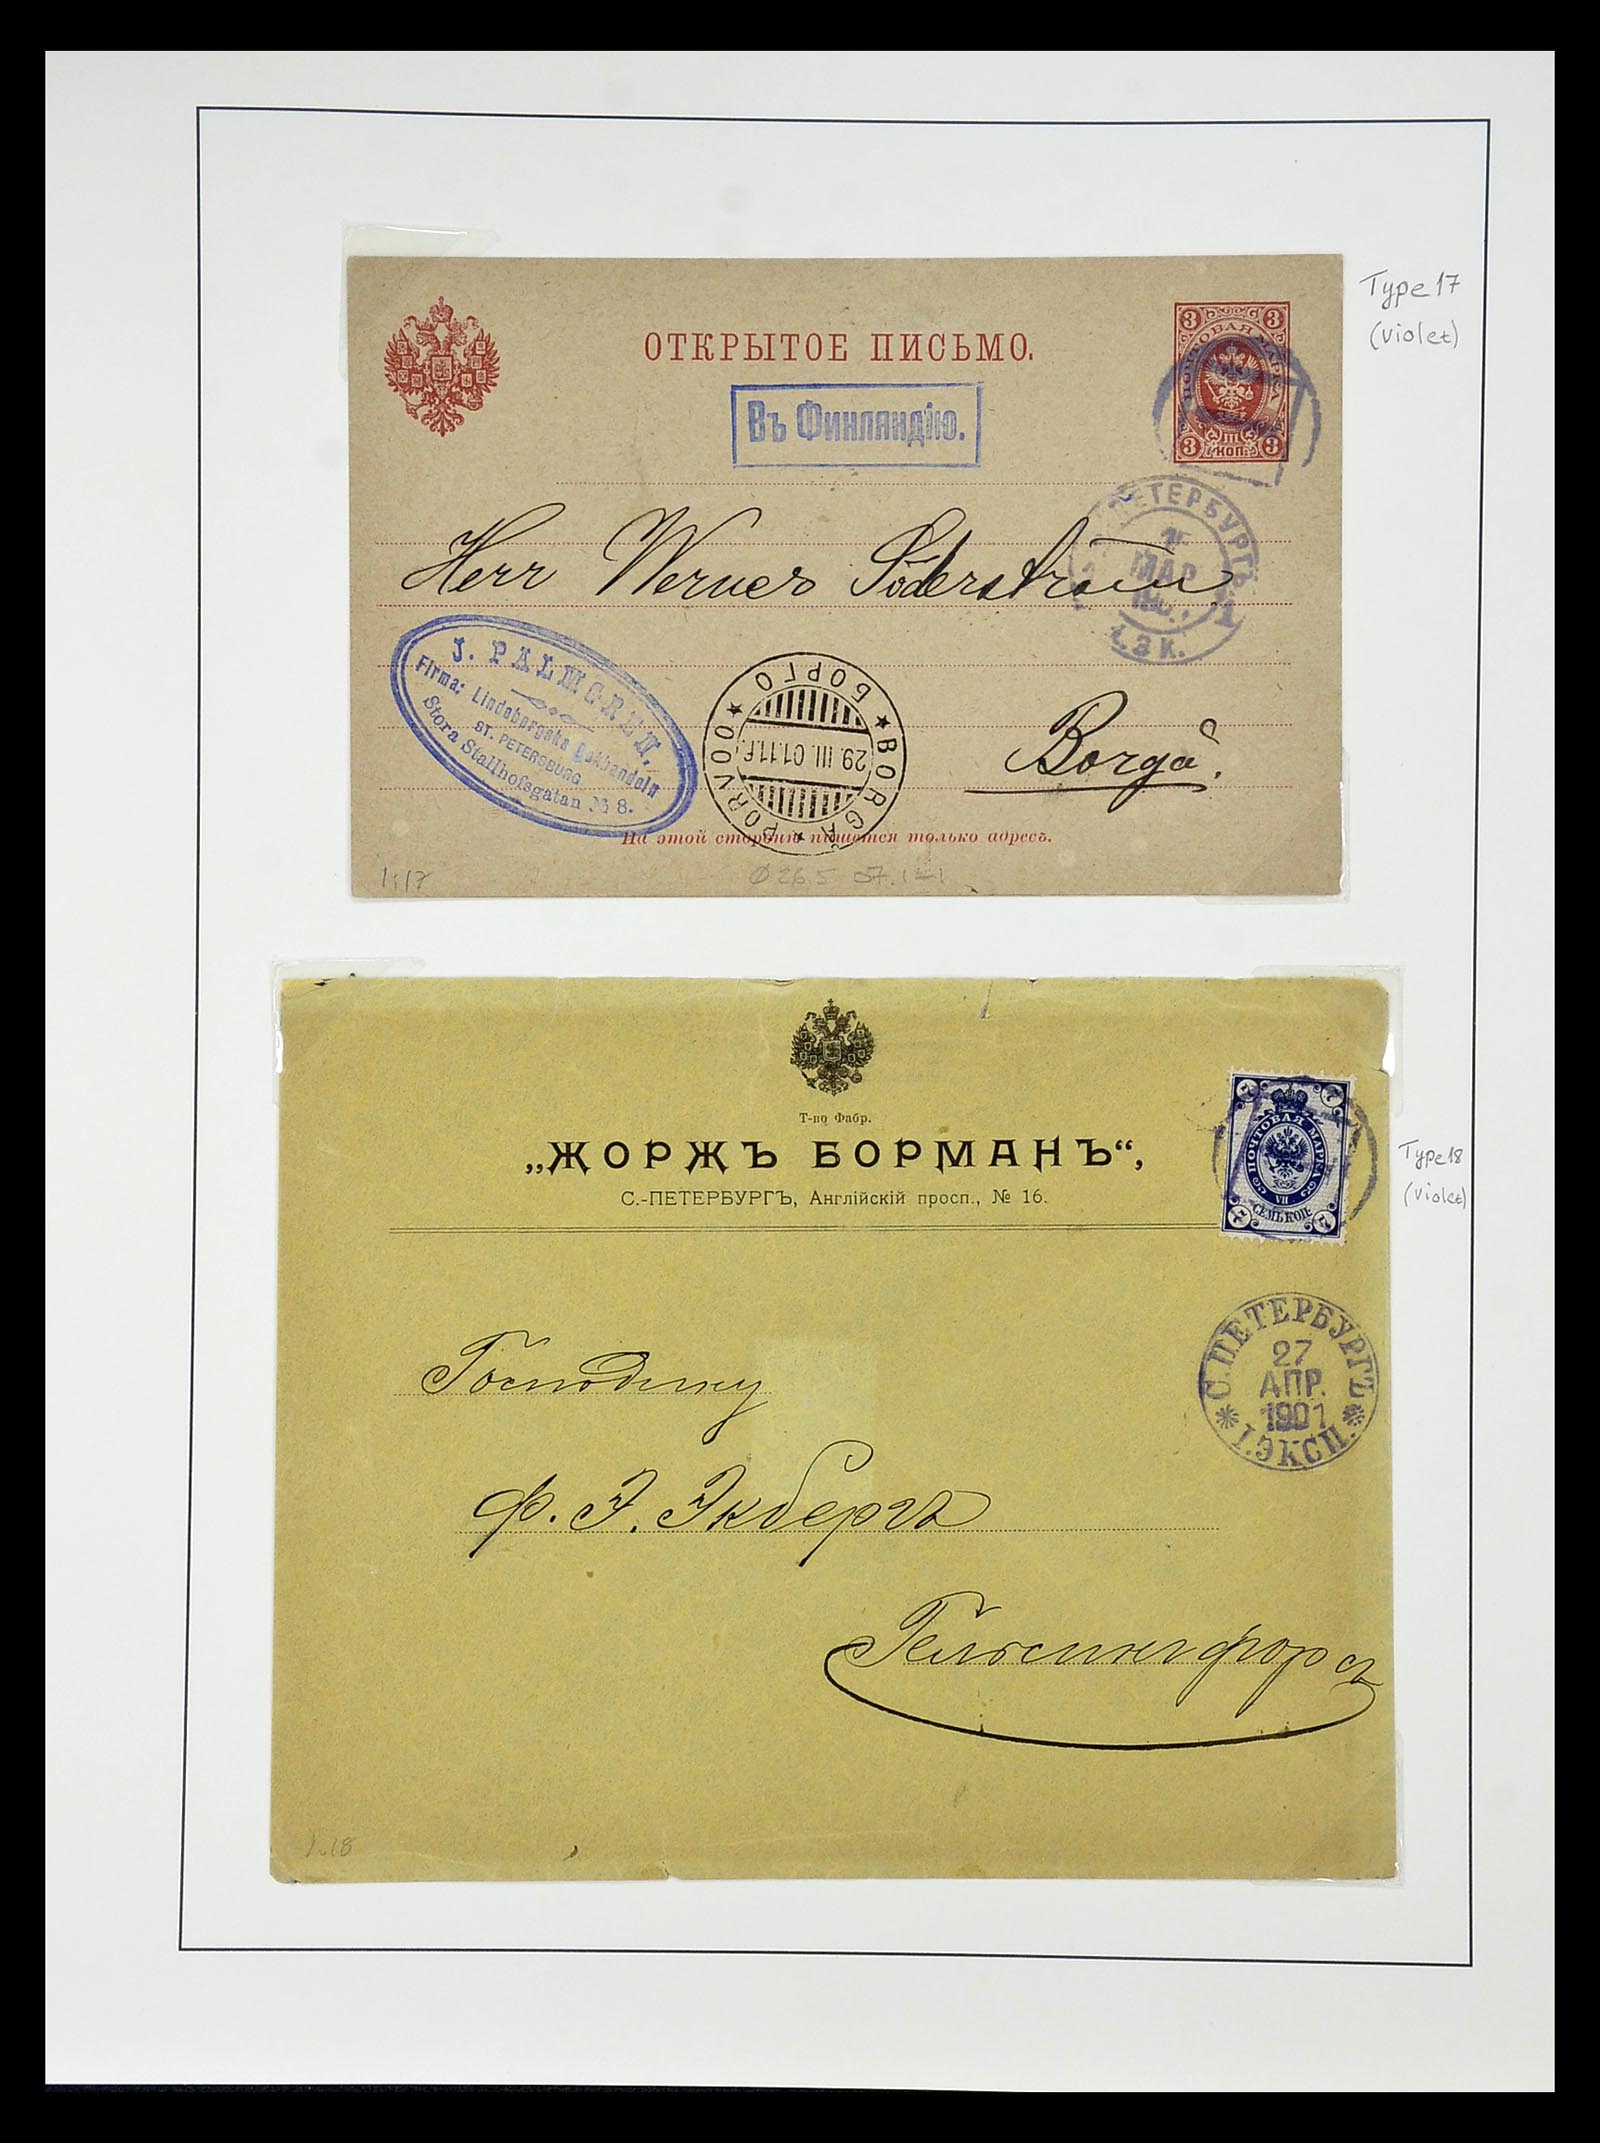 Type 17
(violet)
ОТКРЫТОЕ ПИСЬМО.
3 3
ПОЧТОВАЯ МАРКА
3 III 3
КОП.
Въ Финляндію.
Herr Werner Söderström
ПЕТЕРБУРГЪ
МАР
J. PALMGREN.
Firma: Lindebergska Bokhandeln
ST. PETERSBURG
Stora Stallhofsgatan № 8.
БОРГО ★ BORGÅ ★ PORVOO ★
29.III.01.11.F.
Borgå.
На этой сторонѣ пишется только адресъ.
1:17
Ø 26.5
Т-во Фабр.
„ЖОРЖЪ БОРМАНЪ“,
С.-ПЕТЕРБУРГЪ, Англійскій просп., № 16.
7 7
ПОЧТОВАЯ МАРКА
VII
7 СЕМЬ КОП. 7
Type 18
(violet)
С.ПЕТЕРБУРГЪ
27
АПР.
1901
I.ЭКСП.
Господину
Ф. Э. Экбергъ
Гельсингфорсъ
1:18